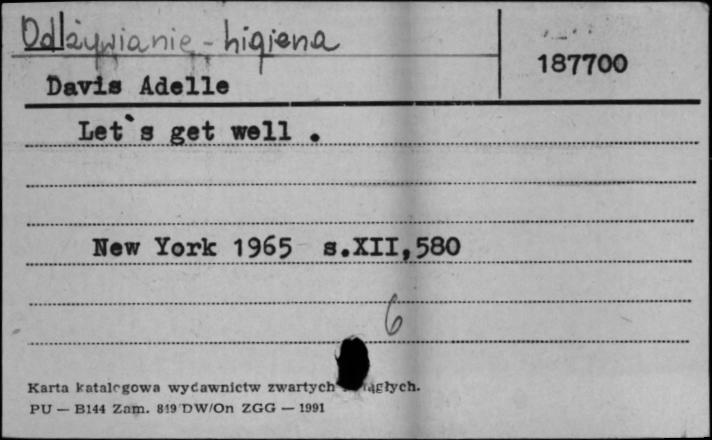 Odżywianie - higiena
187700
Davis Adelle
Let`s get well .
New York 1965 s.XII,580
6
Karta katalogowa wydawnictw zwartych
PU — B144 Zam. 819 DW/On ZGG — 1991